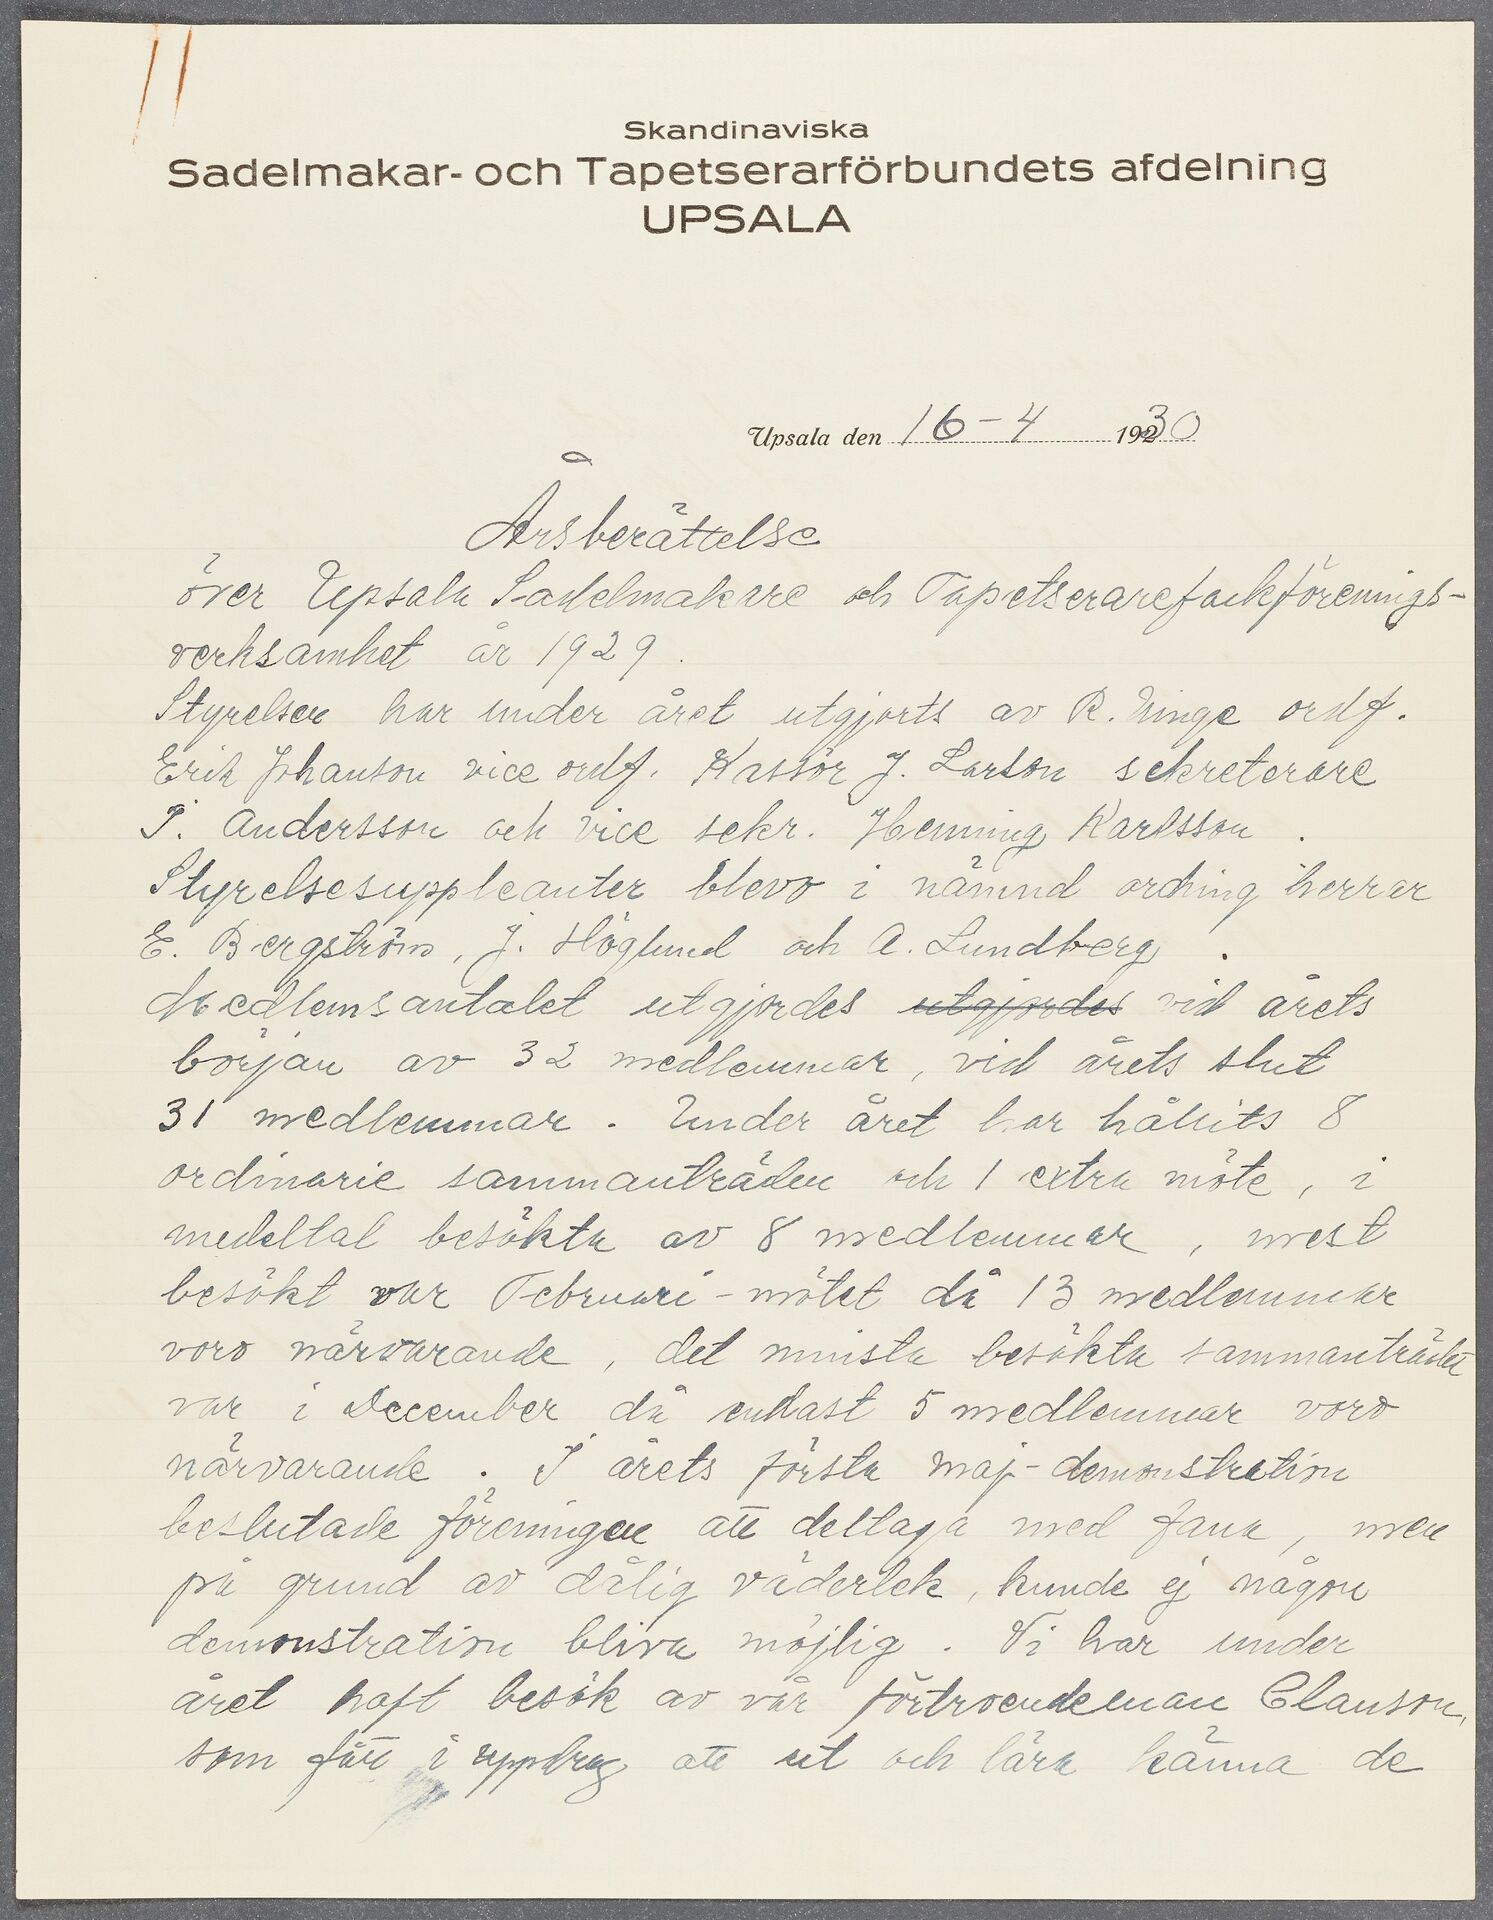 Skandinaviska
Sadelmakar- och Tapetserarförbundets afdelning
UPSALA
Upsala den 16-4 1930
Årsberättelse
över Upsala Sadelmakare och Tapetserarefackförenings-
verksamhet år 1929.
Styrelsen har under året utgjorts av R. Unge ordf.
Erik Johanson vice ordf. Kassör J. Larson sekreterare
I. Andersson och vice sekr. Henning Karlsson.
Styrelsesuppleanter blevo i nämnd ordning herrar
E. Bergström, J. Höglund och A. Lundberg.
Medlemsantalet utgjordes utgjordes vid årets
början av 32 medlemmar, vid årets slut
31 medlemmar. Under året har hållits 8
ordinarie sammanträden och 1 extra möte, i
medeltal besökta av 8 medlemmar, mest
besökt var Februari-mötet då 13 medlemmar
voro närvarande, det minsta besökta sammanträdet
var i December då endast 5 medlemmar voro
närvarande. I årets första maj-demonstration
beslutade föreningen att deltaga med fana, men
på grund av dålig väderlek, kunde ej någon
demonstration bliva möjlig. Vi har under
året haft besök av vår förtroendeman Clauson,
som fått i uppdrag att ut och lära känna de